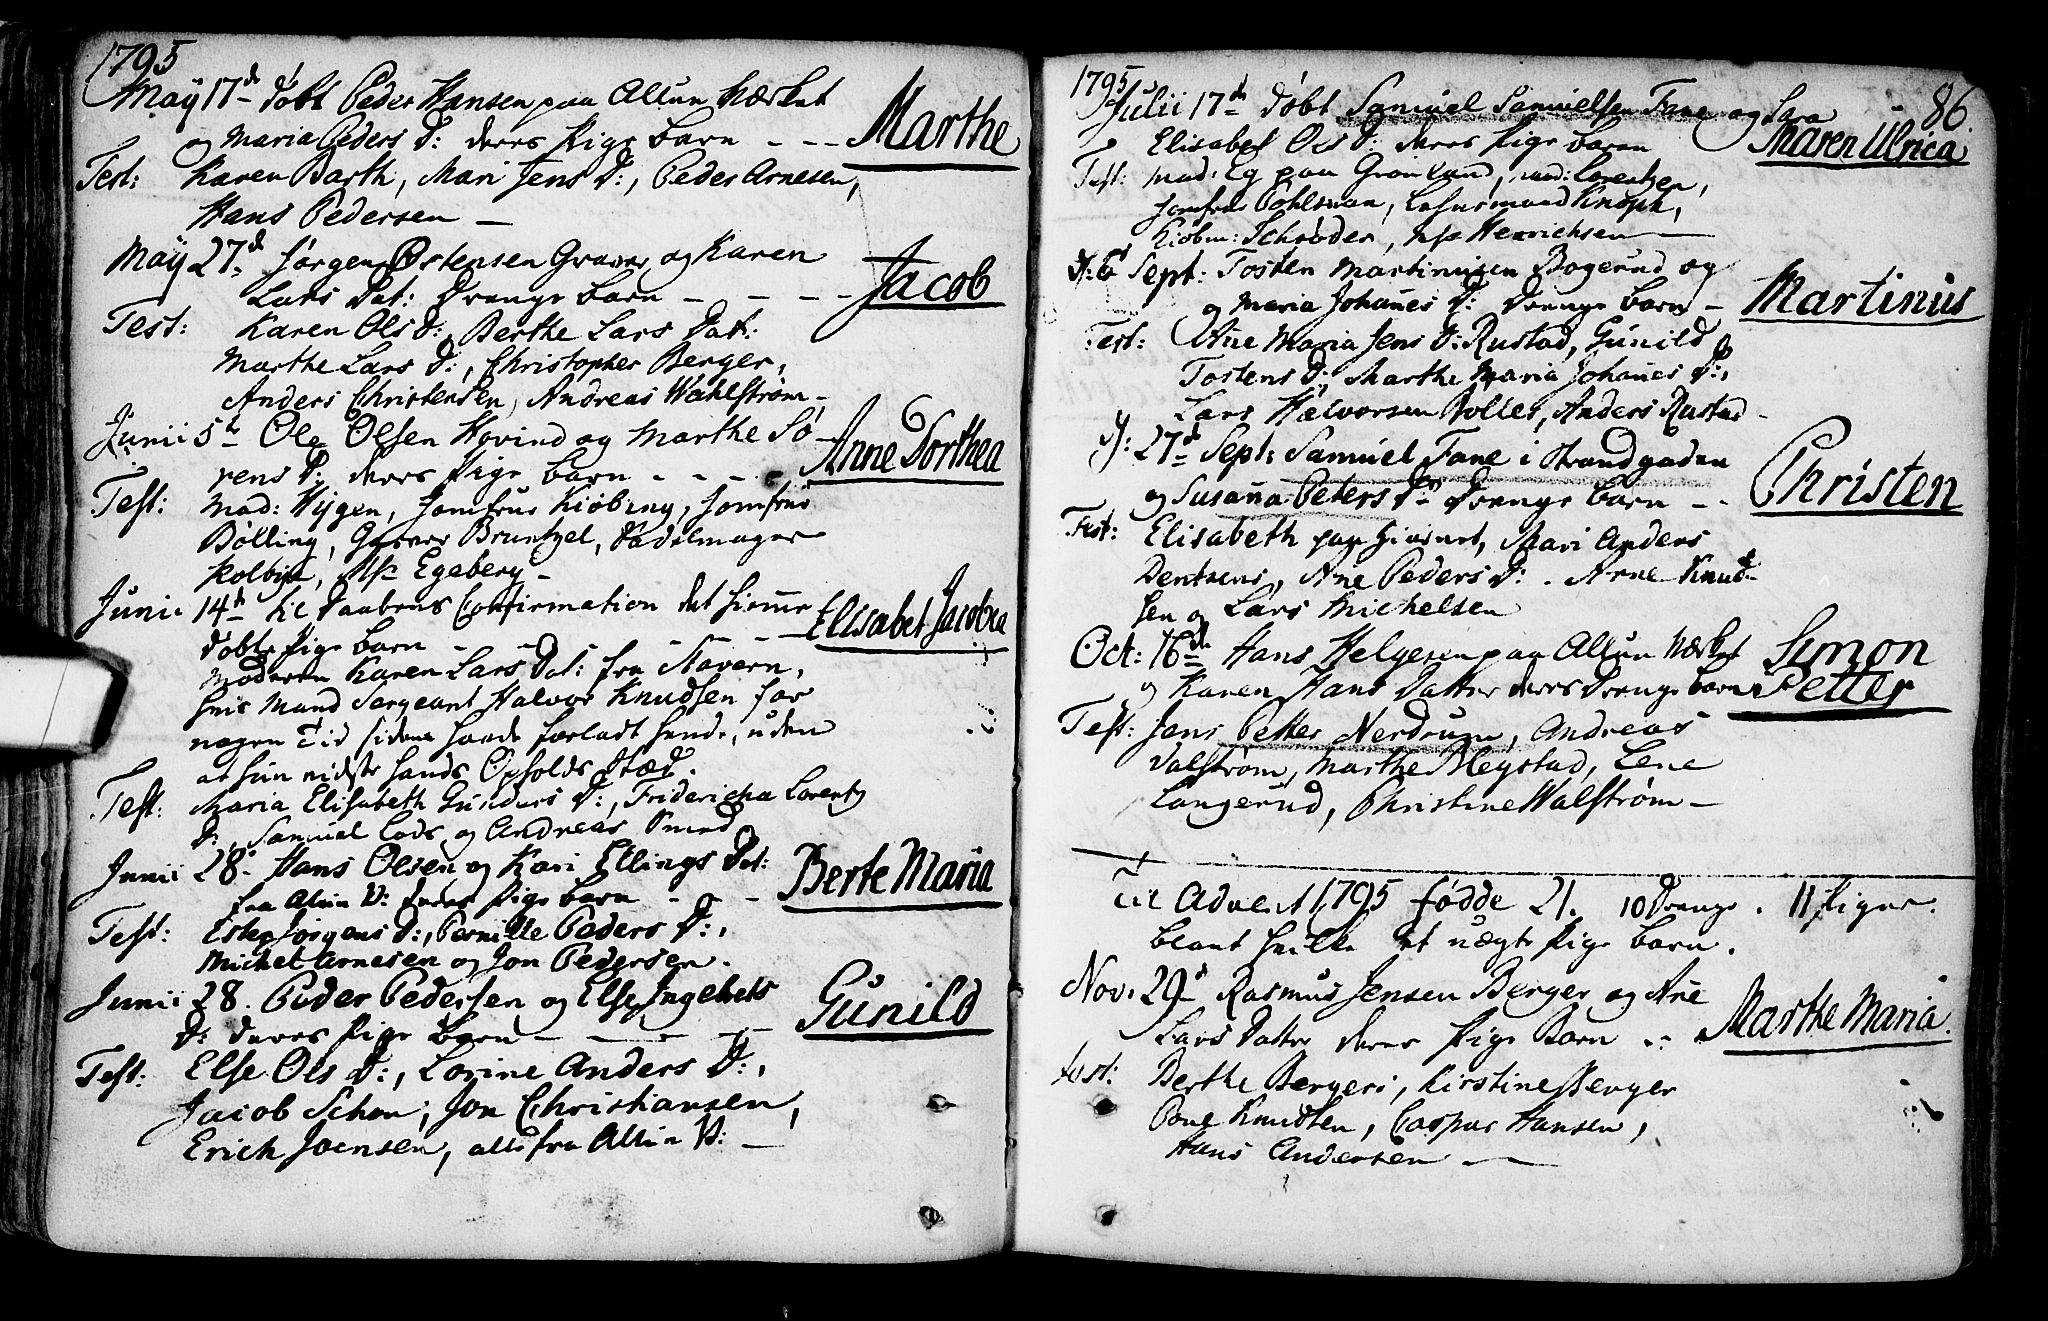 1795
May 17de døbt Peder Hansen paa Allun Værket
og Maria Peders D: deres Pige barn - - - Marthe
Test: Karen Barth, Mari Jens D:, Peder Arnesen,
Hans Pedersen -
May 27de Jørgen Østensen Graver og Karen
Lars Dat: Drenge barn - - - - Jacob
Test: Karen Ols D:, Berthe Lars Dat:
Marthe Lars D:, Christopher Berger,
Anders Christensen, Andreas Wahlstrøm -
Junii 5te Ole Olsen Hovind og Marthe Sø-
rens D: deres Pige barn - - - - Anne Dorthea
Test: Mad: Hygen, Jomfrue Kiøbing, Jomfrue
Bølling, Garver Bruntzel, Sadelmager
Kolbiø, Egeberg -
Junii 14de til Daabens Confirmation det hiemme
døbte Pige barn - - - - - Elisabet Jacobea
Moderen Karen Lars Dat: fra Stavern,
hvis Mand Sergeant Halvor Knudsen for
nogen Tid siden havde forladt hende, uden
at hun vidste hands Opholds Stæd.
Test: Maria Elisabeth Gunders D:, Fridericha Lorentz
D:, Samuel Lods og Andreas Smed
Junii 28. Hans Olsen og Kari Ellings Dat:
fra Alun V: deres Pige barn - - - Berte Maria
Test: Jørgens D:, Pernille Peders D:,
Michel Arnesen og Jon Pedersen.
Junii 28. Peder Pedersen og Else Ingebrets
D: deres Pige barn - - - - Gunild
Test: Else Ols D:, Lorine Anders D:,
Jacob Schou, Jon Christiansen,
Erich Joensen, alle fra Allun V: -
1795
86.
Julii 17de døbt Samuel Samuelsen Fane og Sara
Elisabet Ols D: deres Pige barn Maren Ulrica
Test: Mad: Eg paa Grønlund, Mad: Lorentzen,
Jomfrue Pohlman, Knoph,
Kiøbm: Schrøder, Henrichsen -
d: 6 Sept: Tosten Martinusen Bogerud og
og Maria Johanes D: Drenge barn - Martinus
Test: Ane Maria Jens D: Rustad, Gunild
Tostens D:, Marthe Maria Johanes D:,
Lars Halvorsen Bolles, Anders Rustad -
d: 27de Sept: Samuel Fane i Strandgaden
og Susana Peters Dr Drenge barn - - Christen
Test: Elisabeth paa, Mari Anders
Bentsens, Ane Peders D:. Arne Knud-
sen og Lars Michelsen
Oct: 16de Hans Helgesen paa Allun Værket Simon
og Karen Hans Datter deres Drenge barn Petter
Test: Jens Petter Nerdrum, Andreas
Valstrøm, Marthe Meystad, Lene
Langerud, Christine Walstrøm -
Til Advent 1795 fødde 21. 10 Drenge. 11 Piger.
blant hvilke et uægte Pige barn.
Nov: 29de Rasmus Jensen Berger og Ane
Lars Datter deres Pige Barn - - Marthe Maria.
Test: Berthe Bergers, Kirstine Berger
Knudsen, Caspar Hansen,
Hans Andersen -